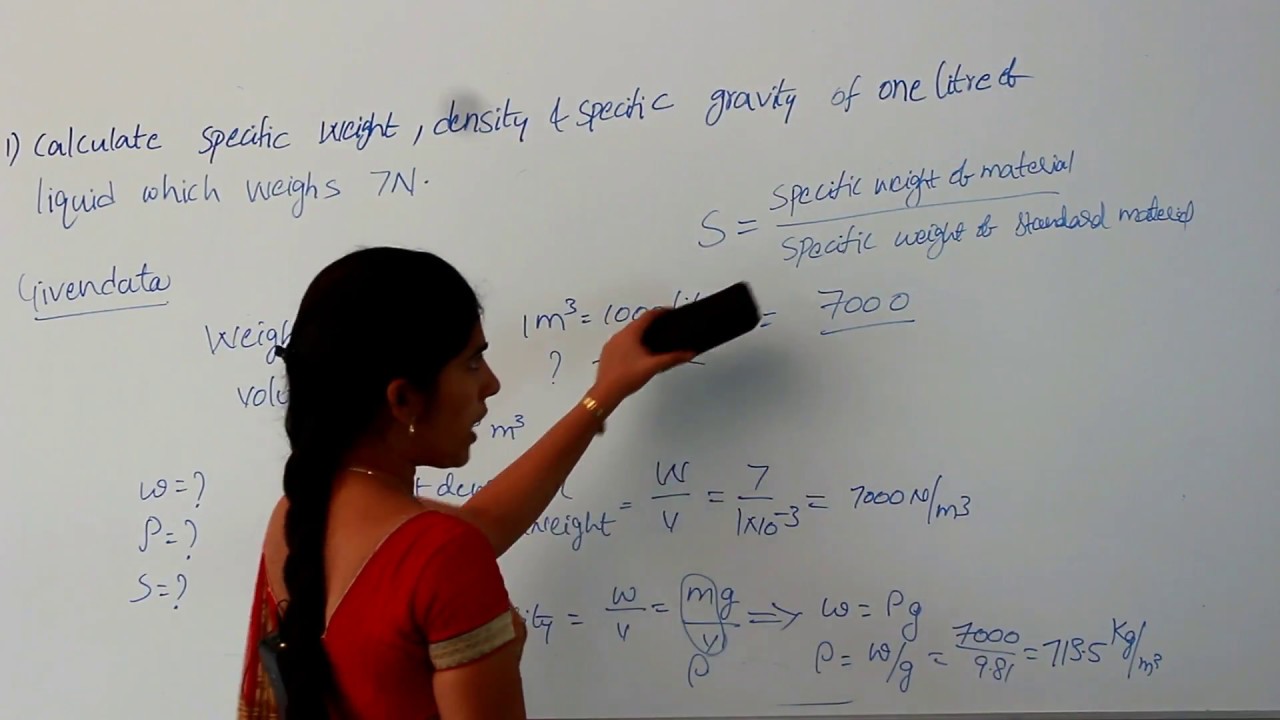 1) Calculate specific weight, density & specific gravity of one litre of
liquid which weighs 7N.
S = specific weight of material / specific weight of standard material
Givendata
1m³ = = 7000
?
m³
w=?
ρ=?
S=?
= W/V = 7/1x10⁻³ = 7000 N/m3
= w/v = mg/v => w = ρg
ρ
ρ = w/g = 7000/9.81 = 713.5 Kg/m³